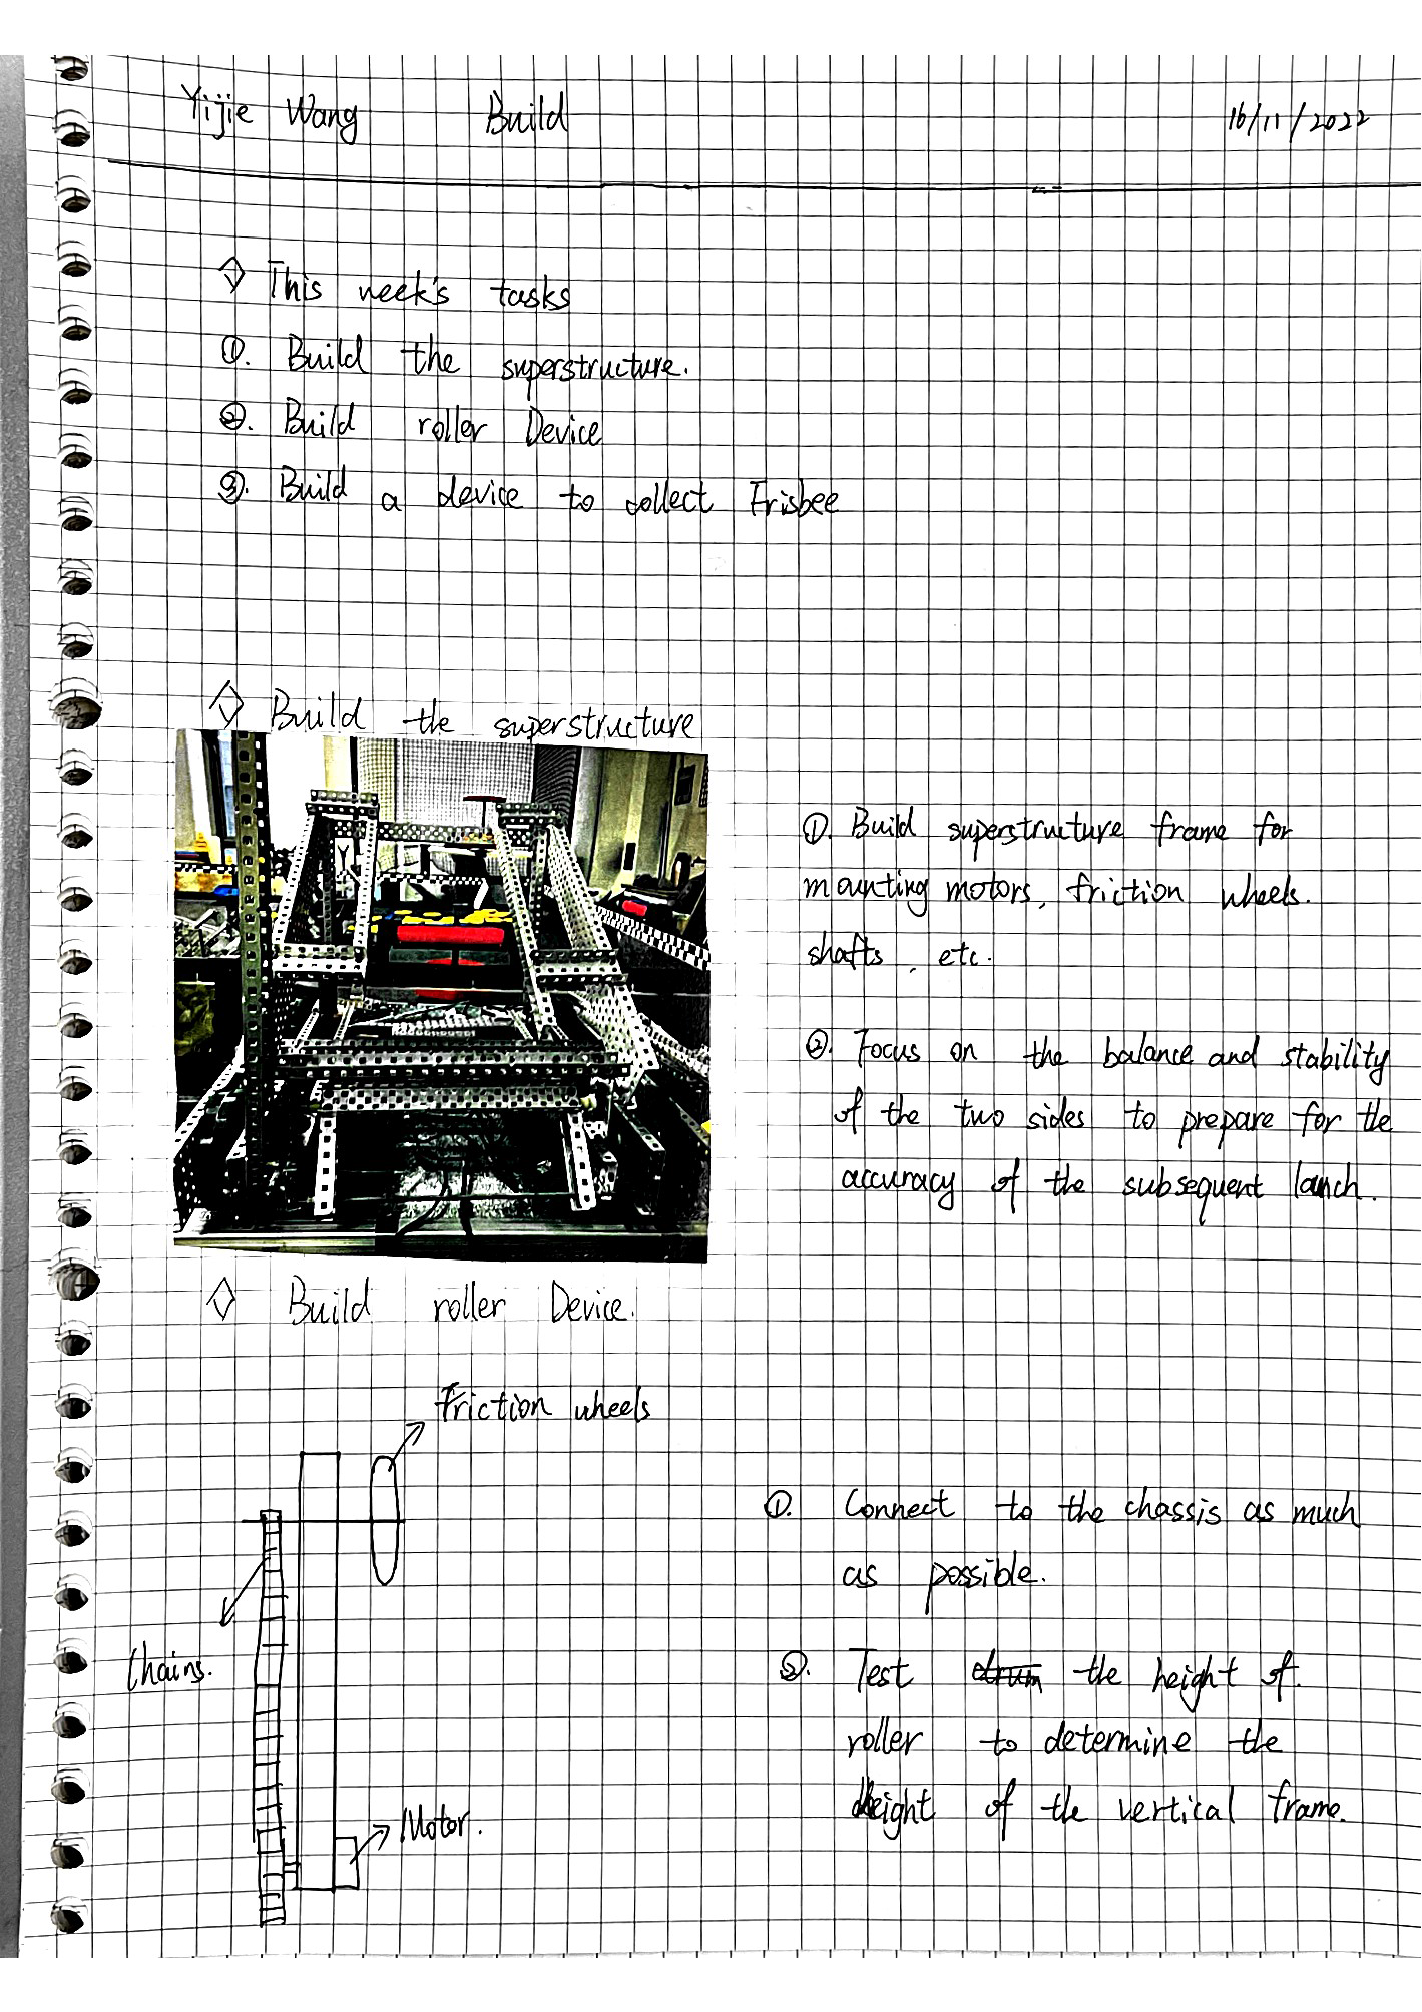 Yijie Wang Build 16/11/2022
◇ This week's tasks
①. Build the superstructure.
②. Build roller Device
③. Build a device to collect Frisbee
◇ Build the superstructure
①. Build superstructure frame for
mounting motors, friction wheels.
shafts, etc.
②. Focus on the balance and stability
of the two sides to prepare for the
accuracy of the subsequent lanch.
◇ Build roller Device.
Friction wheels
Chains.
Motor.
①. Connect to the chassis as much
as possible.
②. Test drum the height of
roller to determine the
height of the vertical frame.